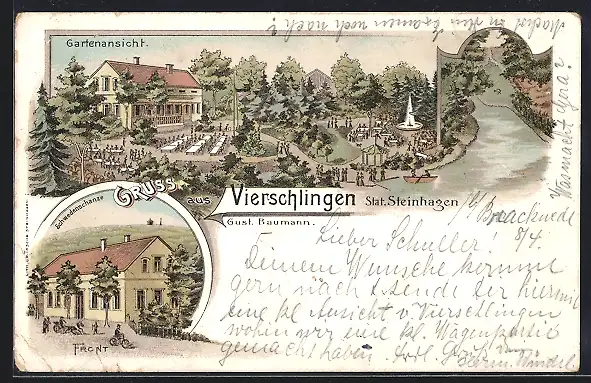 Gartenansicht.
Schwedenschanze
GRUSS aus Vierschlingen Stat. Steinhagen
Gust. Baumann.
FRONT
b/ Brackwede
8/4.
Lieber Schuller!
Deinem Wunsche komme
gern nach & sende Dir hiermit
eine kl. Ansicht v. Vierschlingen
wohin wir eine kl. Wagenpartie
gemacht haben.
Machst Du den Examen noch nach?
Was macht